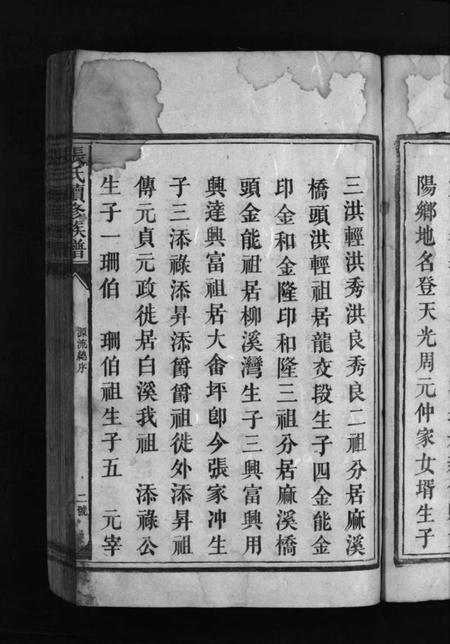 陽鄉地名登天光周元仲家女壻生子
三洪輕洪秀洪良秀良二祖分居麻溪
橋頭洪輕祖居龍㐅段生子四金能金
印金和金隆印和隆三祖分居麻溪橋
頭金能祖居柳溪灣生子三興富興用
興達興富祖居大畬坪卽今張家冲生
子三添祿添昇添爵爵祖徙外添昇祖
傳元貞元政徙居白溪我祖　添祿公
生子一珊伯　珊伯祖生子五　元宰
張氏續修族譜
源流總序
二號